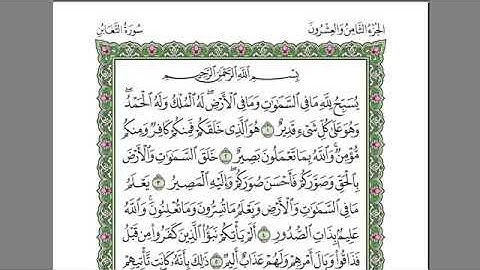 الجزء الثامن والعشرون
سورة التغابن
بِسْمِ اللَّهِ الرَّحْمَٰنِ الرَّحِيمِ
يُسَبِّحُ لِلَّهِ مَا فِي السَّمَٰوَٰتِ وَمَا فِي الْأَرْضِ ۖ لَهُ الْمُلْكُ وَلَهُ الْحَمْدُ ۖ
وَهُوَ عَلَىٰ كُلِّ شَيْءٍ قَدِيرٌ ١ هُوَ الَّذِي خَلَقَكُمْ فَمِنكُمْ كَافِرٌ وَمِنكُم
مُّؤْمِنٌ ۚ وَاللَّهُ بِمَا تَعْمَلُونَ بَصِيرٌ ٢ خَلَقَ السَّمَٰوَٰتِ وَالْأَرْضَ
بِالْحَقِّ وَصَوَّرَكُمْ فَأَحْسَنَ صُوَرَكُمْ ۖ وَإِلَيْهِ الْمَصِيرُ ٣ يَعْلَمُ
مَا فِي السَّمَٰوَٰتِ وَالْأَرْضِ وَيَعْلَمُ مَا تُسِرُّونَ وَمَا تُعْلِنُونَ ۚ وَاللَّهُ
عَلِيمٌ بِذَاتِ الصُّدُورِ ٤ أَلَمْ يَأْتِكُمْ نَبَؤُا الَّذِينَ كَفَرُوا مِن قَبْلُ
فَذَاقُوا وَبَالَ أَمْرِهِمْ وَلَهُمْ عَذَابٌ أَلِيمٌ ٥ ذَٰلِكَ بِأَنَّهُ كَانَت تَّأْتِيهِمْ